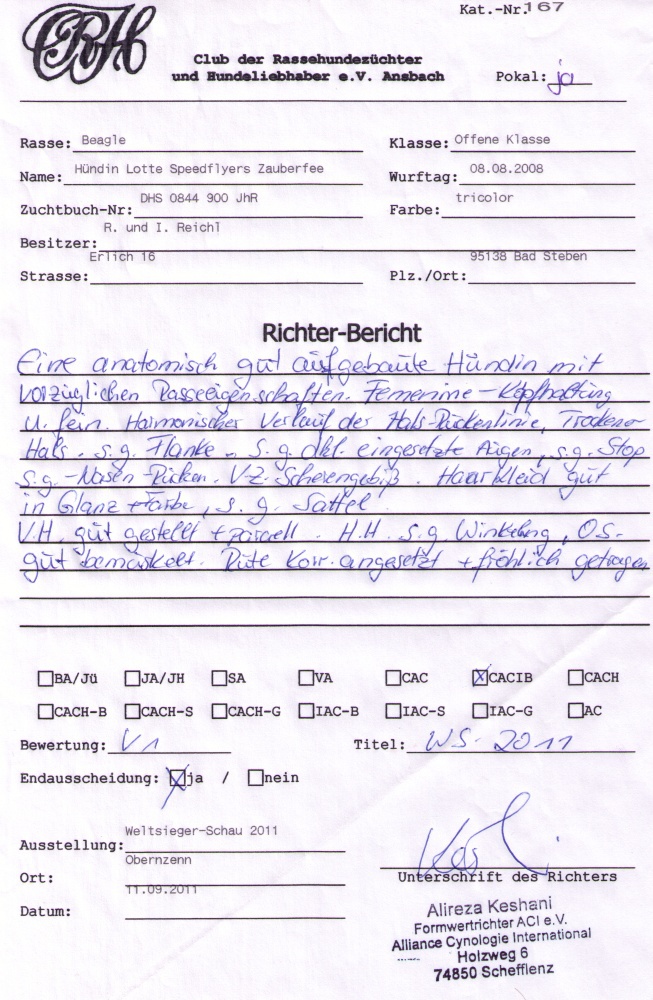 CRH
Kat.-Nr.167
Club der Rassehundezüchter
und Hundeliebhaber e.V. Ansbach
Pokal: ja
Rasse: Beagle
Klasse: Offene Klasse
Name: Hündin Lotte Speedflyers Zauberfee
Wurftag: 08.08.2008
Zuchtbuch-Nr: DHS 0844 900 JhR
Farbe: tricolor
Besitzer: R. und I. Reichl
Strasse: Erlich 16
Plz./Ort: 95138 Bad Steben
Richter-Bericht
Eine anatomisch gut aufgebaute Hündin mit
vorzüglichen Rasseeigenschaften. Feminine - Kopfhaltung
u. fein. Harmonischer Verlauf der Hals-Rückenlinie, Trockener
Hals. s.g. Flanke. s.g. dkl. eingesetzte Augen, s.g. Stop
s.g. - Nasen-Rücken. VZ. Scherengebiß. Haarkleid gut
in Glanz + Farbe, s.g. Sattel
V.H. gut gestellt + parallel. H.H. s.g. Winkelung, O.S.
gut bemuskelt. Rute korr. angesetzt + fröhlich getragen
BA/Jü JA/JH SA VA CAC CACIB CACH
CACH-B CACH-S CACH-G IAC-B IAC-S IAC-G AC
Bewertung: V1
Titel: WS-2011
Endausscheidung: ja / nein
Ausstellung: Weltsieger-Schau 2011
Ort: Obernzenn
Datum: 11.09.2011
Unterschrift des Richters
Alireza Keshani
Formwertrichter ACI e.V.
Alliance Cynologie International
Holzweg 6
74850 Schefflenz